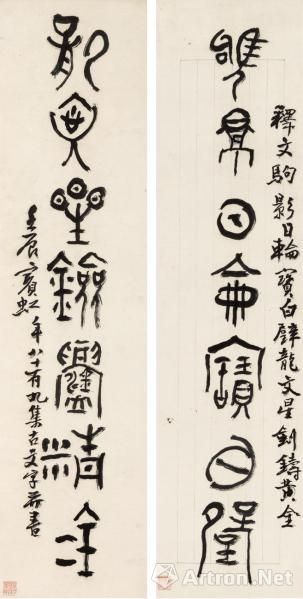 釋文駒影日輪寶白璧龍文星劍鑄黃金
駒景日侖寶白璧
龍文星劍鑄黃金
壬辰賓虹年八十有九集古文字并書
Artron.Net